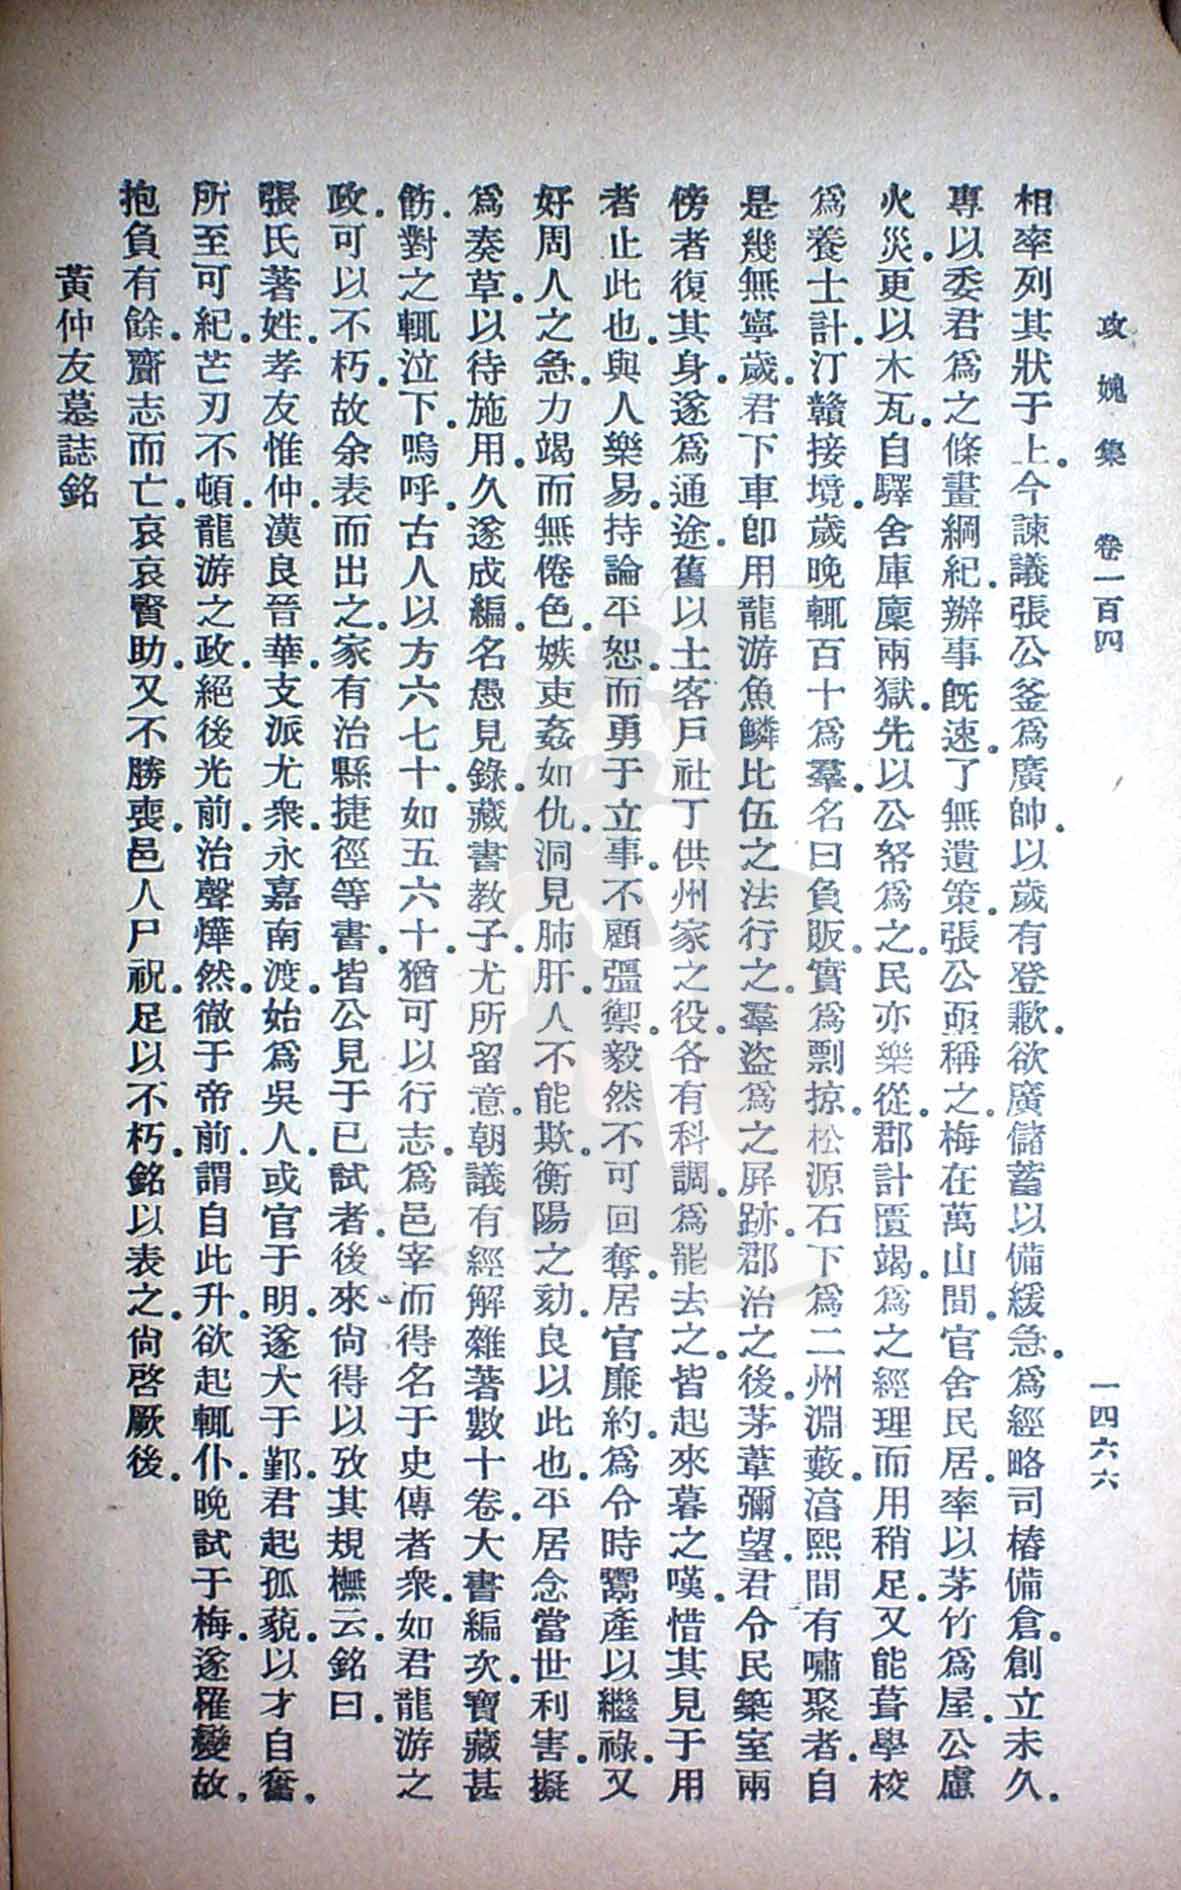 攻媿集　卷一百四　一四六六
相率列其狀于上。今諫議張公釜爲廣帥。以歲有登歉。欲廣儲蓄以備緩急。爲經略司樁備倉。創立未久。
專以委君爲之條畫綱紀。辦事旣速。了無遺策。張公亟稱之。梅在萬山間。官舍民居。率以茅竹爲屋。公慮
火災。更以木瓦。自驛舍庫廩兩獄。先以公帑爲之。民亦樂從。郡計匱竭。爲之經理而用稍足。又能葺學校
爲養士計。汀贛接境。歲晚輒百十爲羣。名曰負販。實爲剽掠。松源石下爲二州淵藪。淳熙間有嘯聚者。自
是幾無寧歲。君下車卽用龍游魚鱗比伍之法行之。羣盜爲之屛跡。郡治之後。茅葦彌望。君令民築室兩
傍者復其身。遂爲通途。舊以土客戶社丁供州家之役。各有科調。爲罷去之。皆起來暮之嘆。惜其見于用
者止此也。與人樂易。持論平恕。而勇于立事。不顧彊禦。毅然不可回奪。居官廉約。爲令時鬻產以繼祿。又
好周人之急。力竭而無倦色。嫉吏姦如仇。洞見肺肝。人不能欺。衡陽之劾。良以此也。平居念當世利害。擬
爲奏草。以待施用。久遂成編。名愚見錄。藏書教子。尤所留意。朝議有經解雜著數十卷。大書編次。寶藏甚
飭。對之輒泣下。嗚呼。古人以方六七十如五六十。猶可以行志。爲邑宰而得名于史傳者衆。如君龍游之
政。可以不朽。故余表而出之。家有治縣捷徑等書。皆公見于已試者。後來尙得以攷其規橅云。銘曰。
張氏著姓。孝友惟仲。漢良晉華。支派尤衆。永嘉南渡。始爲吳人。或官于明。遂大于鄞。君起孤藐。以才自奮。
所至可紀。芒刃不頓。龍游之政。絕後光前。治聲燁然。徹于帝前。謂自此升。欲起輒仆。晚試于梅。遂罹變故。
抱負有餘。齎志而亡。哀哀賢助。又不勝喪。邑人尸祝。足以不朽。銘以表之。尙啓厥後。
黃仲友墓誌銘